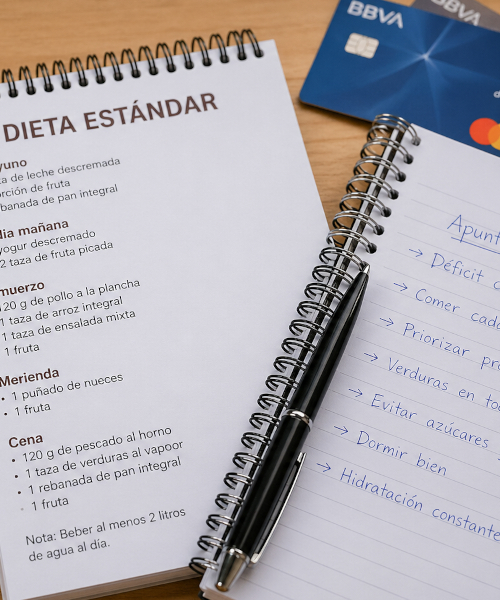 DIETA ESTÁNDAR
de leche descremada
de fruta
de pan integral
mañana
yogur descremado
2 taza de fruta picada
120 g de pollo a la plancha
1 taza de arroz integral
1 taza de ensalada mixta
1 fruta
Merienda
• 1 puñado de nueces
• 1 fruta
Cena
• 120 g de pescado al horno
• 1 taza de verduras al vapoor
• 1 rebanada de pan integral
• 1 fruta
Nota: Beber al menos 2 litros
de agua al día.
BBVA
BBVA
→ Déficit
→ Comer
→ Priorizar
→ Verduras en
→ Evitar azúcares
→ Dormir bien
→ Hidratación constante